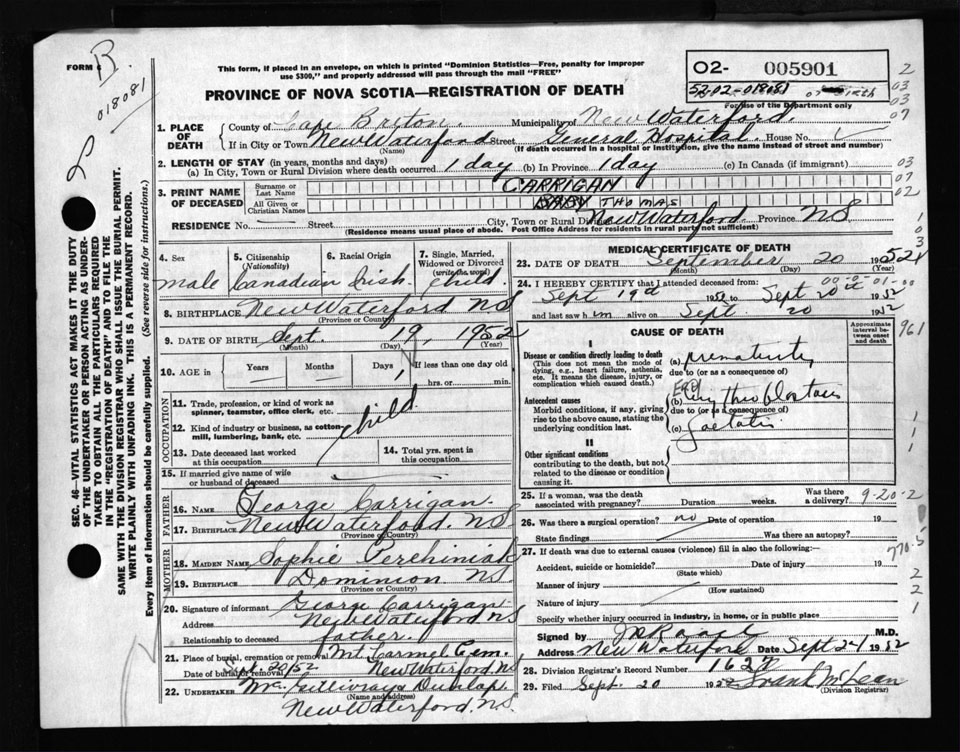 FORM 6 B.
018081
This form, if placed in an envelope, on which is printed "Dominion Statistics—Free, penalty for improper
use $300," and properly addressed will pass through the mail "FREE"
PROVINCE OF NOVA SCOTIA—REGISTRATION OF DEATH
02- 005901
5202-018081 of Birth
For use of the Department only
2
03
03
07
1. PLACE OF DEATH County of Cape Breton. Municipality of New Waterford.
If in City or Town New Waterford Street General Hospital. House No.
(Name) (If death occurred in a hospital or institution, give the name instead of street and number)
2. LENGTH OF STAY (in years, months and days)
(a) In City, Town or Rural Division where death occurred 1 day (b) In Province 1 day (c) In Canada (if immigrant)
03
07
02
3. PRINT NAME OF DECEASED Surname or Last Name CARRIGAN
All Given or Christian Names BABY THOMAS
RESIDENCE No. Street City, Town or Rural Div. New Waterford. Province N.S
(Residence means usual place of abode. Post Office Address for residents in rural parts not sufficient)
SEC. 46—VITAL STATISTICS ACT MAKES IT THE DUTY
OF THE UNDERTAKER OR PERSON ACTING AS UNDER-
TAKER TO OBTAIN ALL THE PARTICULARS REQUIRED
IN THE "REGISTRATION OF DEATH" AND TO FILE THE
SAME WITH THE DIVISION REGISTRAR WHO SHALL ISSUE THE BURIAL PERMIT.
WRITE PLAINLY WITH UNFADING INK. THIS IS A PERMANENT RECORD.
Every item of information should be carefully supplied. (See reverse side for instructions.)
4. Sex male
5. Citizenship (Nationality) Canadian
6. Racial Origin Irish
7. Single, Married, Widowed or Divorced (write the word) Child.
8. BIRTHPLACE New Waterford N.S
(Province or Country)
9. DATE OF BIRTH Sept. 19, 1952
(Month) (Day) (Year)
10. AGE in Years Months Days 1 If less than one day old
hrs. or min.
OCCUPATION
11. Trade, profession, or kind of work as
spinner, teamster, office clerk, etc. child
12. Kind of industry or business, as cotton-
mill, lumbering, bank, etc.
13. Date deceased last worked
at this occupation
14. Total yrs. spent in
this occupation
15. If married give name of wife
or husband of deceased
FATHER
16. Name George Carrigan
17. Birthplace New Waterford. N.S
(Province or Country)
MOTHER
18. MAIDEN NAME Sophie Perchiniak
19. BIRTHPLACE Dominion N.S.
(Province or Country)
20. Signature of informant George Carrigan
Address New Waterford N.S
Relationship to deceased father.
21. Place of burial, cremation or removal Mt. Carmel Cem.
Date of burial or removal Sept. 20/52 New Waterford, N.S
22. UNDERTAKER McGillivray & Dunlap
(Name and address)
New Waterford, N.S.
MEDICAL CERTIFICATE OF DEATH
23. DATE OF DEATH September 20 1952
(Month) (Day) (Year)
24. I HEREBY CERTIFY that I attended deceased from:
Sept 19 1952 to Sept 20 1952
and last saw him alive on Sept. 20 1952
CAUSE OF DEATH
Approximate interval between onset and death
961
I
Disease or condition directly leading to death
(This does not mean the mode of
dying, e.g., heart failure, asthenia,
etc. It means the disease, injury, or
complication which caused death.)
(a) prematurity
due to (or as a consequence of)
Antecedent causes
Morbid conditions, if any, giving
rise to the above cause, stating the
underlying condition last.
(b) Erythroblastosis
due to (or as a consequence of)
(c) foetalis
II
Other significant conditions
contributing to the death, but not
related to the disease or condition
causing it.
25. If a woman, was the death
associated with pregnancy? Duration weeks. Was there a delivery?
9-20-2
26. Was there a surgical operation? no Date of operation 19
State findings Was there an autopsy?
770.5
27. If death was due to external causes (violence) fill in also the following:—
Accident, suicide or homicide? Date of injury 19
(State which)
Manner of injury
(How sustained)
Nature of injury
2
2
1
Specify whether injury occurred in industry, in home, or in public place
Signed by M.D.
Address New Waterford Date Sept 21 1952
28. Division Registrar's Record Number 162
29. Filed Sept. 20 1952 Frank McLean
(Division Registrar)